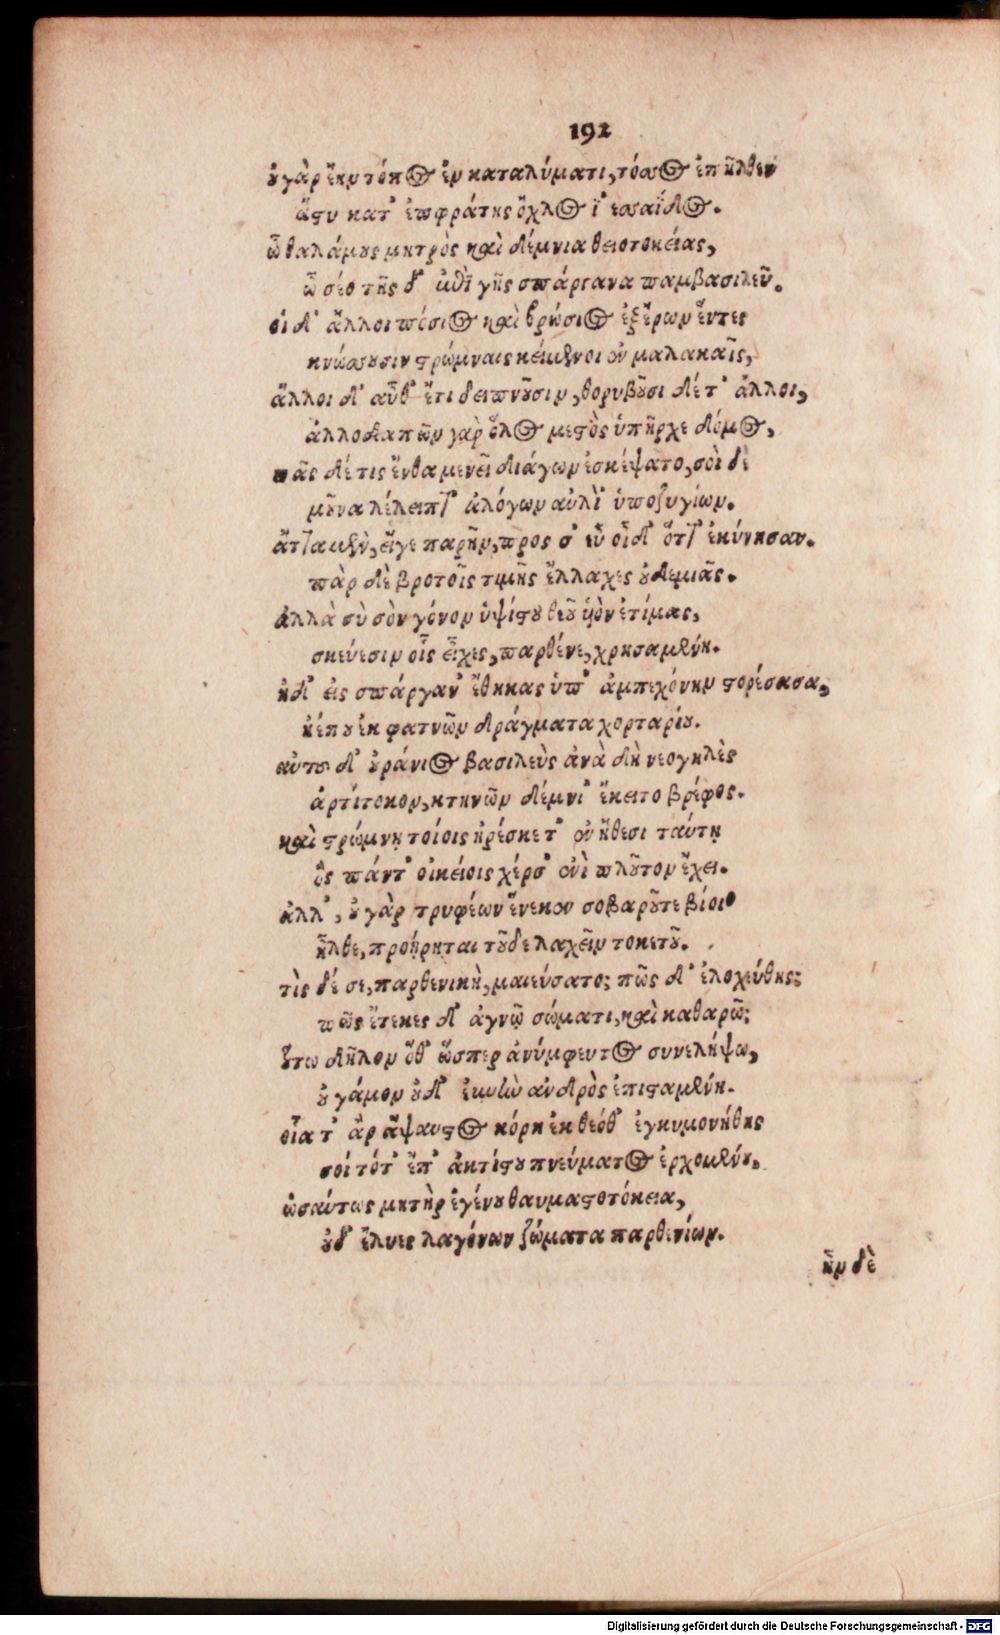 192
οὐ γὰρ ἔην τόπος ἐν καταλύματι, τόσος ἐπῆλθεν
ἄστυ κατ' ἐυφράτης ὄχλος
ὦ θαλάμους μητρὸς καὶ δέμνια θειοτοκείας,
ὦ σέο τῆς δ' γῆς σπάργανα παμβασιλεῦ.
οἱ δ' ἄλλοι πόσιος καὶ βρώσιος ἐξ ἔρων ἕντες
κνώσουσιν στρώμναις κείμενοι ἐν μαλακαῖς,
ἄλλοι δ' αὖθ' ἔτι δειπνοῦσιν, θορυβοῦσι δέ τ' ἄλλοι,
ἀλλοδαπῶν γὰρ ὅλος μεστὸς ὑπῆρχε δόμος,
πᾶς δέ τις ἔνθα μενεῖ διάγων ἐσκέψατο, σοὶ δὲ
μοῦνα λέλειπτ' ἀλόγων αὐλὶ' ὑποζυγίων.
ἅττα μὲν, εἴγε παρῆν, προς σ' εὖ οἶδ' ὅττ' ἐκύνησαν.
πὰρ δὲ βροτοῖς τιμῆς ἔλλαχες οὐδεμιᾶς.
ἀλλὰ σὺ σὸν γόνον ὑψίστου θεοῦ υἱὸν ἐτίμας,
σκεύεσιν οἷς εἶχες, παρθένε, χρησαμένη.
ἠδ' εἰς σπάργαν' ἔθηκας ὑπ' ἀμπεχόνην στορέσασα,
κἐπου ἐκ φατνῶν δράγματα χορταρίου.
αὐτὸς δ' οὐράνιος βασιλεὺς ἀνὰ δὴ νεογηλὲς
ἀρτίτοκον, κτηνῶν δέμνι' ἔκειτο βρέφος.
καὶ στρώμνῃ τοίοις ἠρέσκετ' ἐν ἤθεσι ταύτῃ
ὃς πάντ' οἰκείοις χέρσ' ἐνὶ πλοῦτον ἔχει.
ἀλλ', οὐ γὰρ τρυφέων ἕνεκεν σοβαροῦτε βίοιο
ἦλθε, προῄρηται τοῦδε λαχεῖν τοκετοῦ.
τὶς δέ σε, παρθενικὴ, μαιεύσατο; πῶς δ' ἐλοχεύθης;
πῶς ἔτεκες δ' ἁγνῷ σώματι, καὶ καθαρῷ;
οὕτω δῆλον ὅθ' ὥσπερ ἀνύμφευτος συνελήψω,
οὐ γάμον οὐδ' εὐνὴν ἀνδρὸς ἐπισταμένη.
οἷα τ' ἂρ ἄψαυστος κόρη ἐκ θεόθ' ἐγκυμονήθης
σοί τότ' ἔπ' ἀκτίστου πνεύματος ἐρχομένου.
ὡσαύτως μητὴρ ἐγένου θαυμαστοτόκεια,
οὐδ' ἔλυες λαγόνων ζώματα παρθενίων.
ἦν δὲ
Digitalisierung gefördert durch die Deutsche Forschungsgemeinschaft - DFG